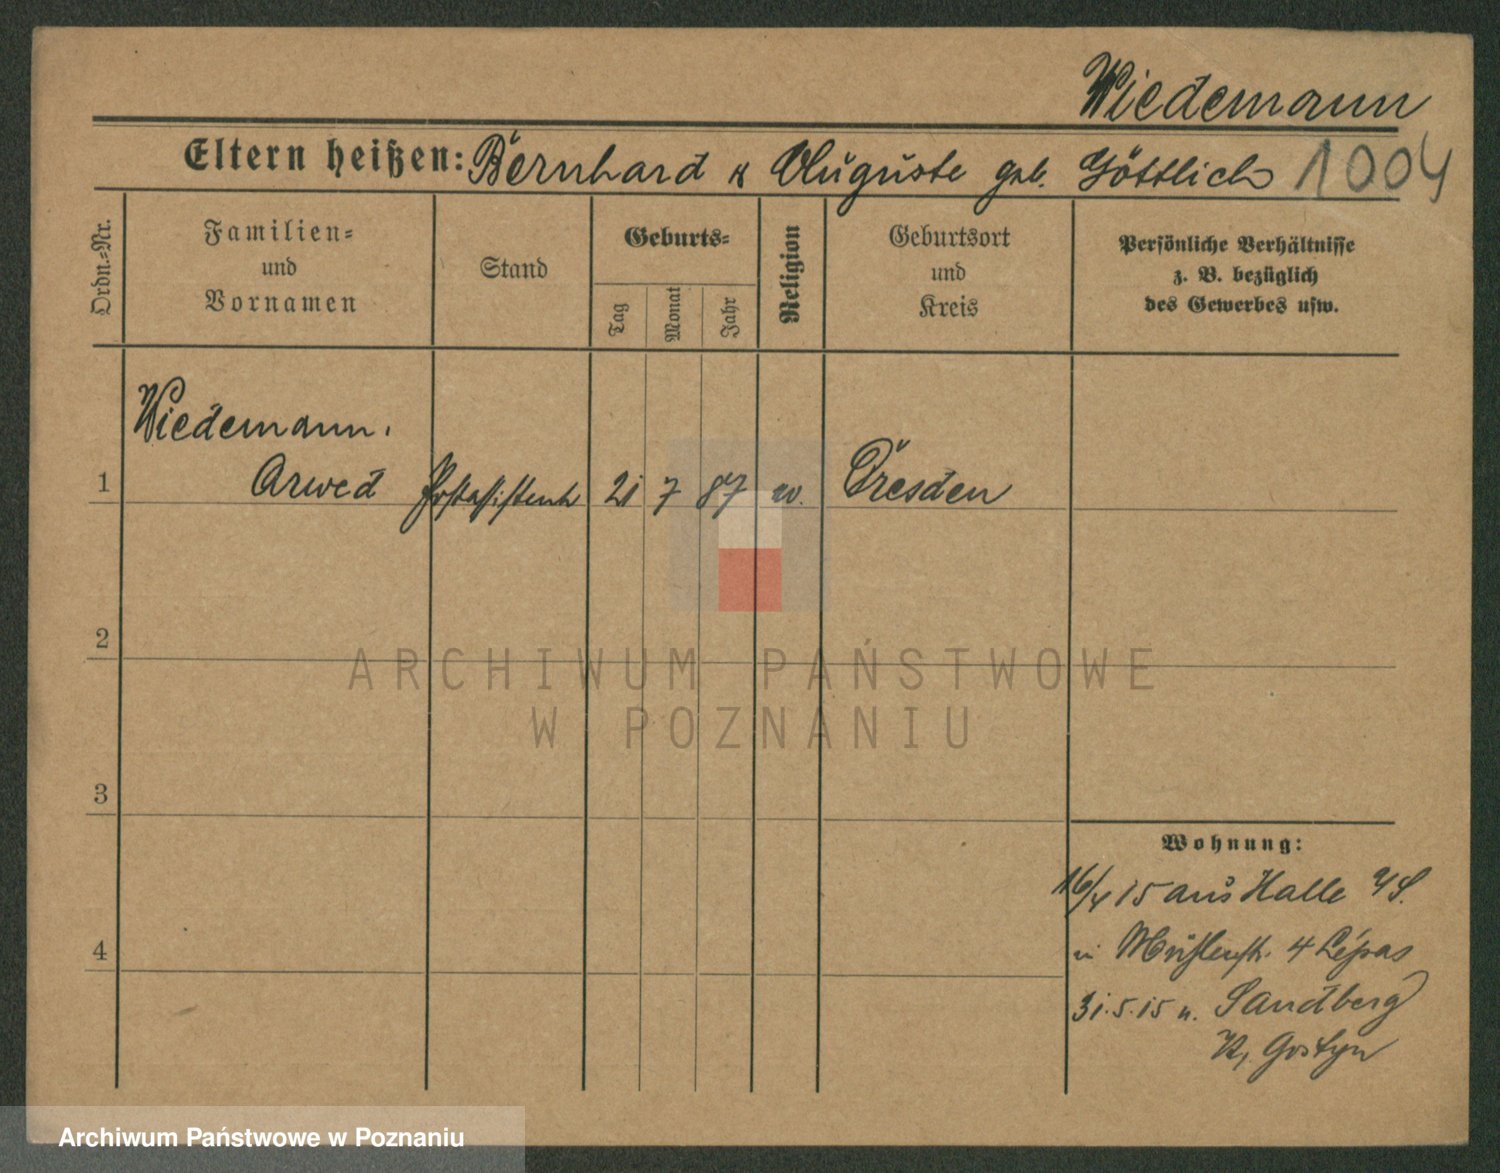 Wiedemann
Eltern heißen: Bernhard & Auguste geb. Göttlich 1004
Ordn.-Nr.
Familien-
und
Vornamen
Stand
Geburts-
Tag
Monat
Jahr
Religion
Geburtsort
und
Kreis
Persönliche Verhältnisse
z. B. bezüglich
des Gewerbes usw.
Wiedemann.
1 Arwed Postassistent 21 7 87 Dresden
2
3
4
Wohnung:
16/4 15 aus Halle
Mühlenstr. 4
31.5.15 n. Sandberg
Kr. Gostyn
ARCHIWUM PAŃSTWOWE
W POZNANIU
Archiwum Państwowe w Poznaniu